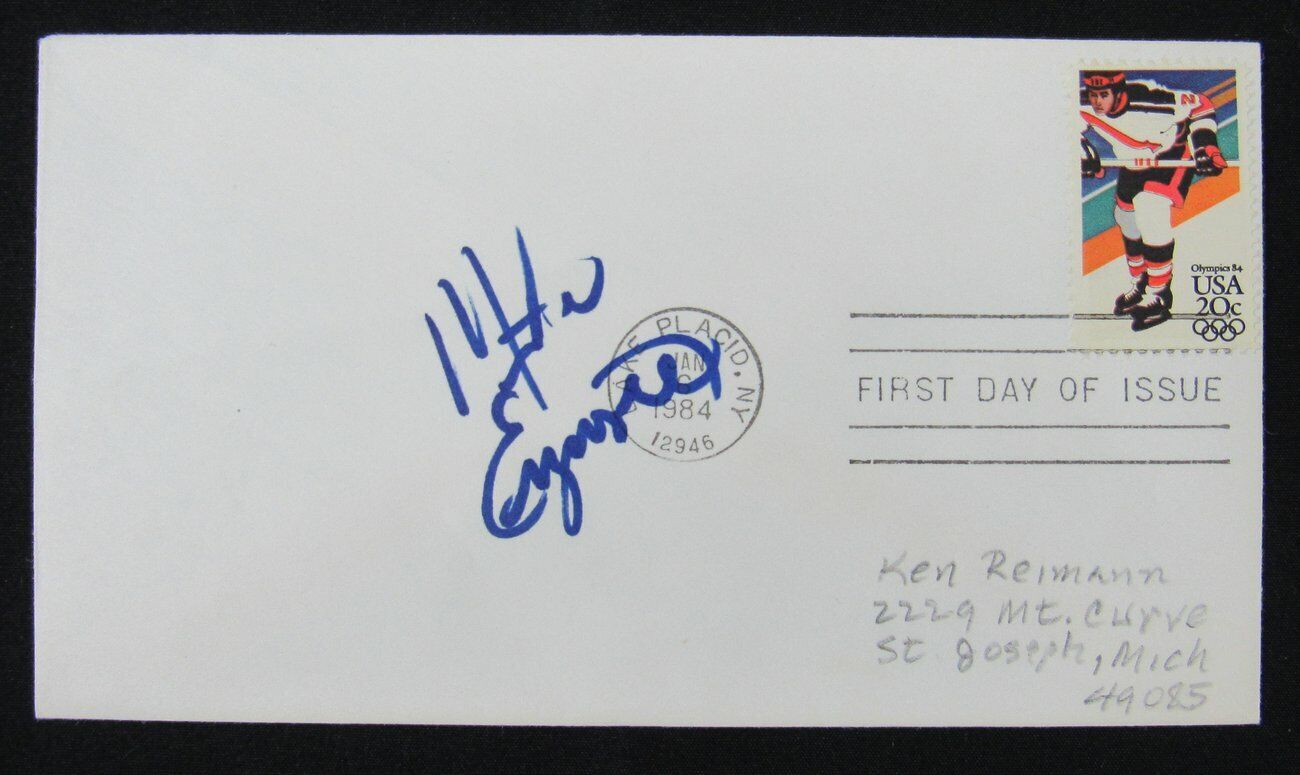 2
Olympics 84
USA
20c
LAKE PLACID, NY
JAN
6
1984
12946
FIRST DAY OF ISSUE
Mike
Eruzione
Ken Reimann
2229 Mt. Curve
St. Joseph, Mich
49085